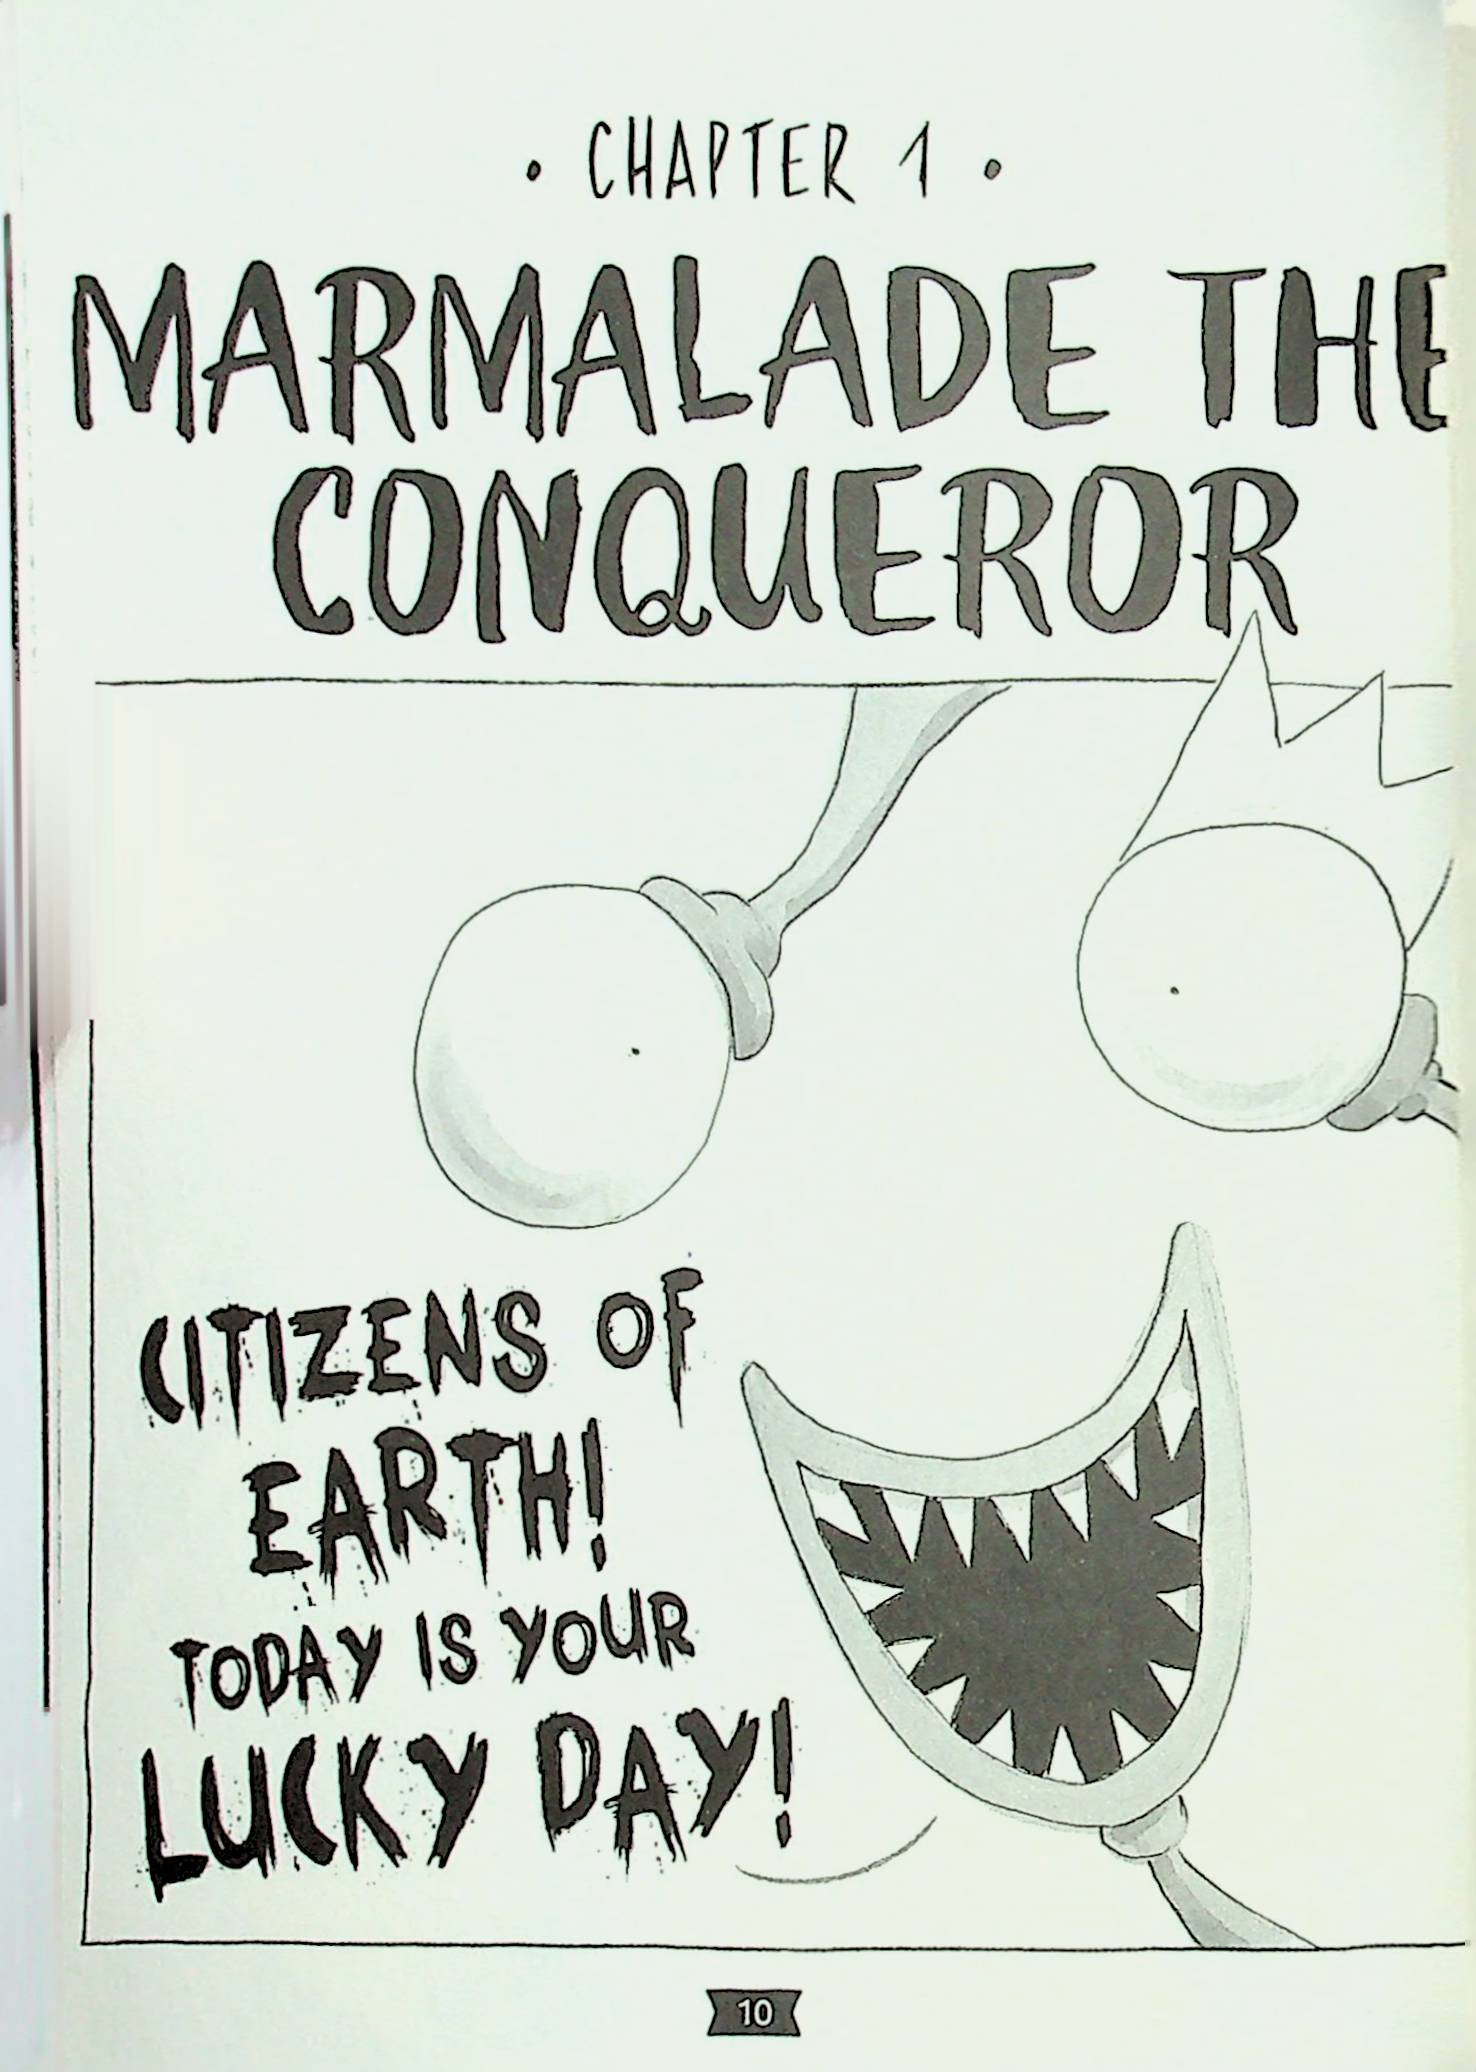 • CHAPTER 1 •
MARMALADE THE
CONQUEROR
CITIZENS OF
EARTH!
TODAY IS YOUR
LUCKY DAY!
10